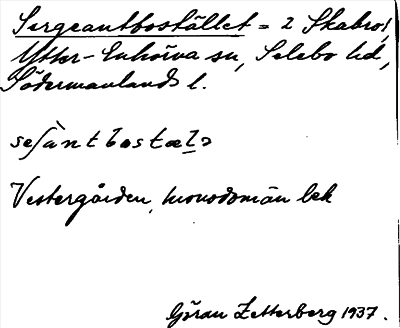 Sergeantbostället = 2 Skabro!
Ytter-Enhörna sn, Selebo hd,
Södermanlands l.
seʃànt bostælə
Vestergården, kronodomän bek
Göran Zetterberg 1937.